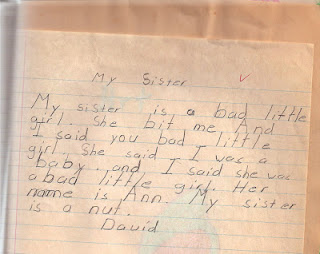 My Sister
My sister is a bad little
girl. She bit me. And
I said you bad little
girl. She said I was a
baby. and I said she was
a bad little girl. Her
name is Ann. My sister
is a nut.
David